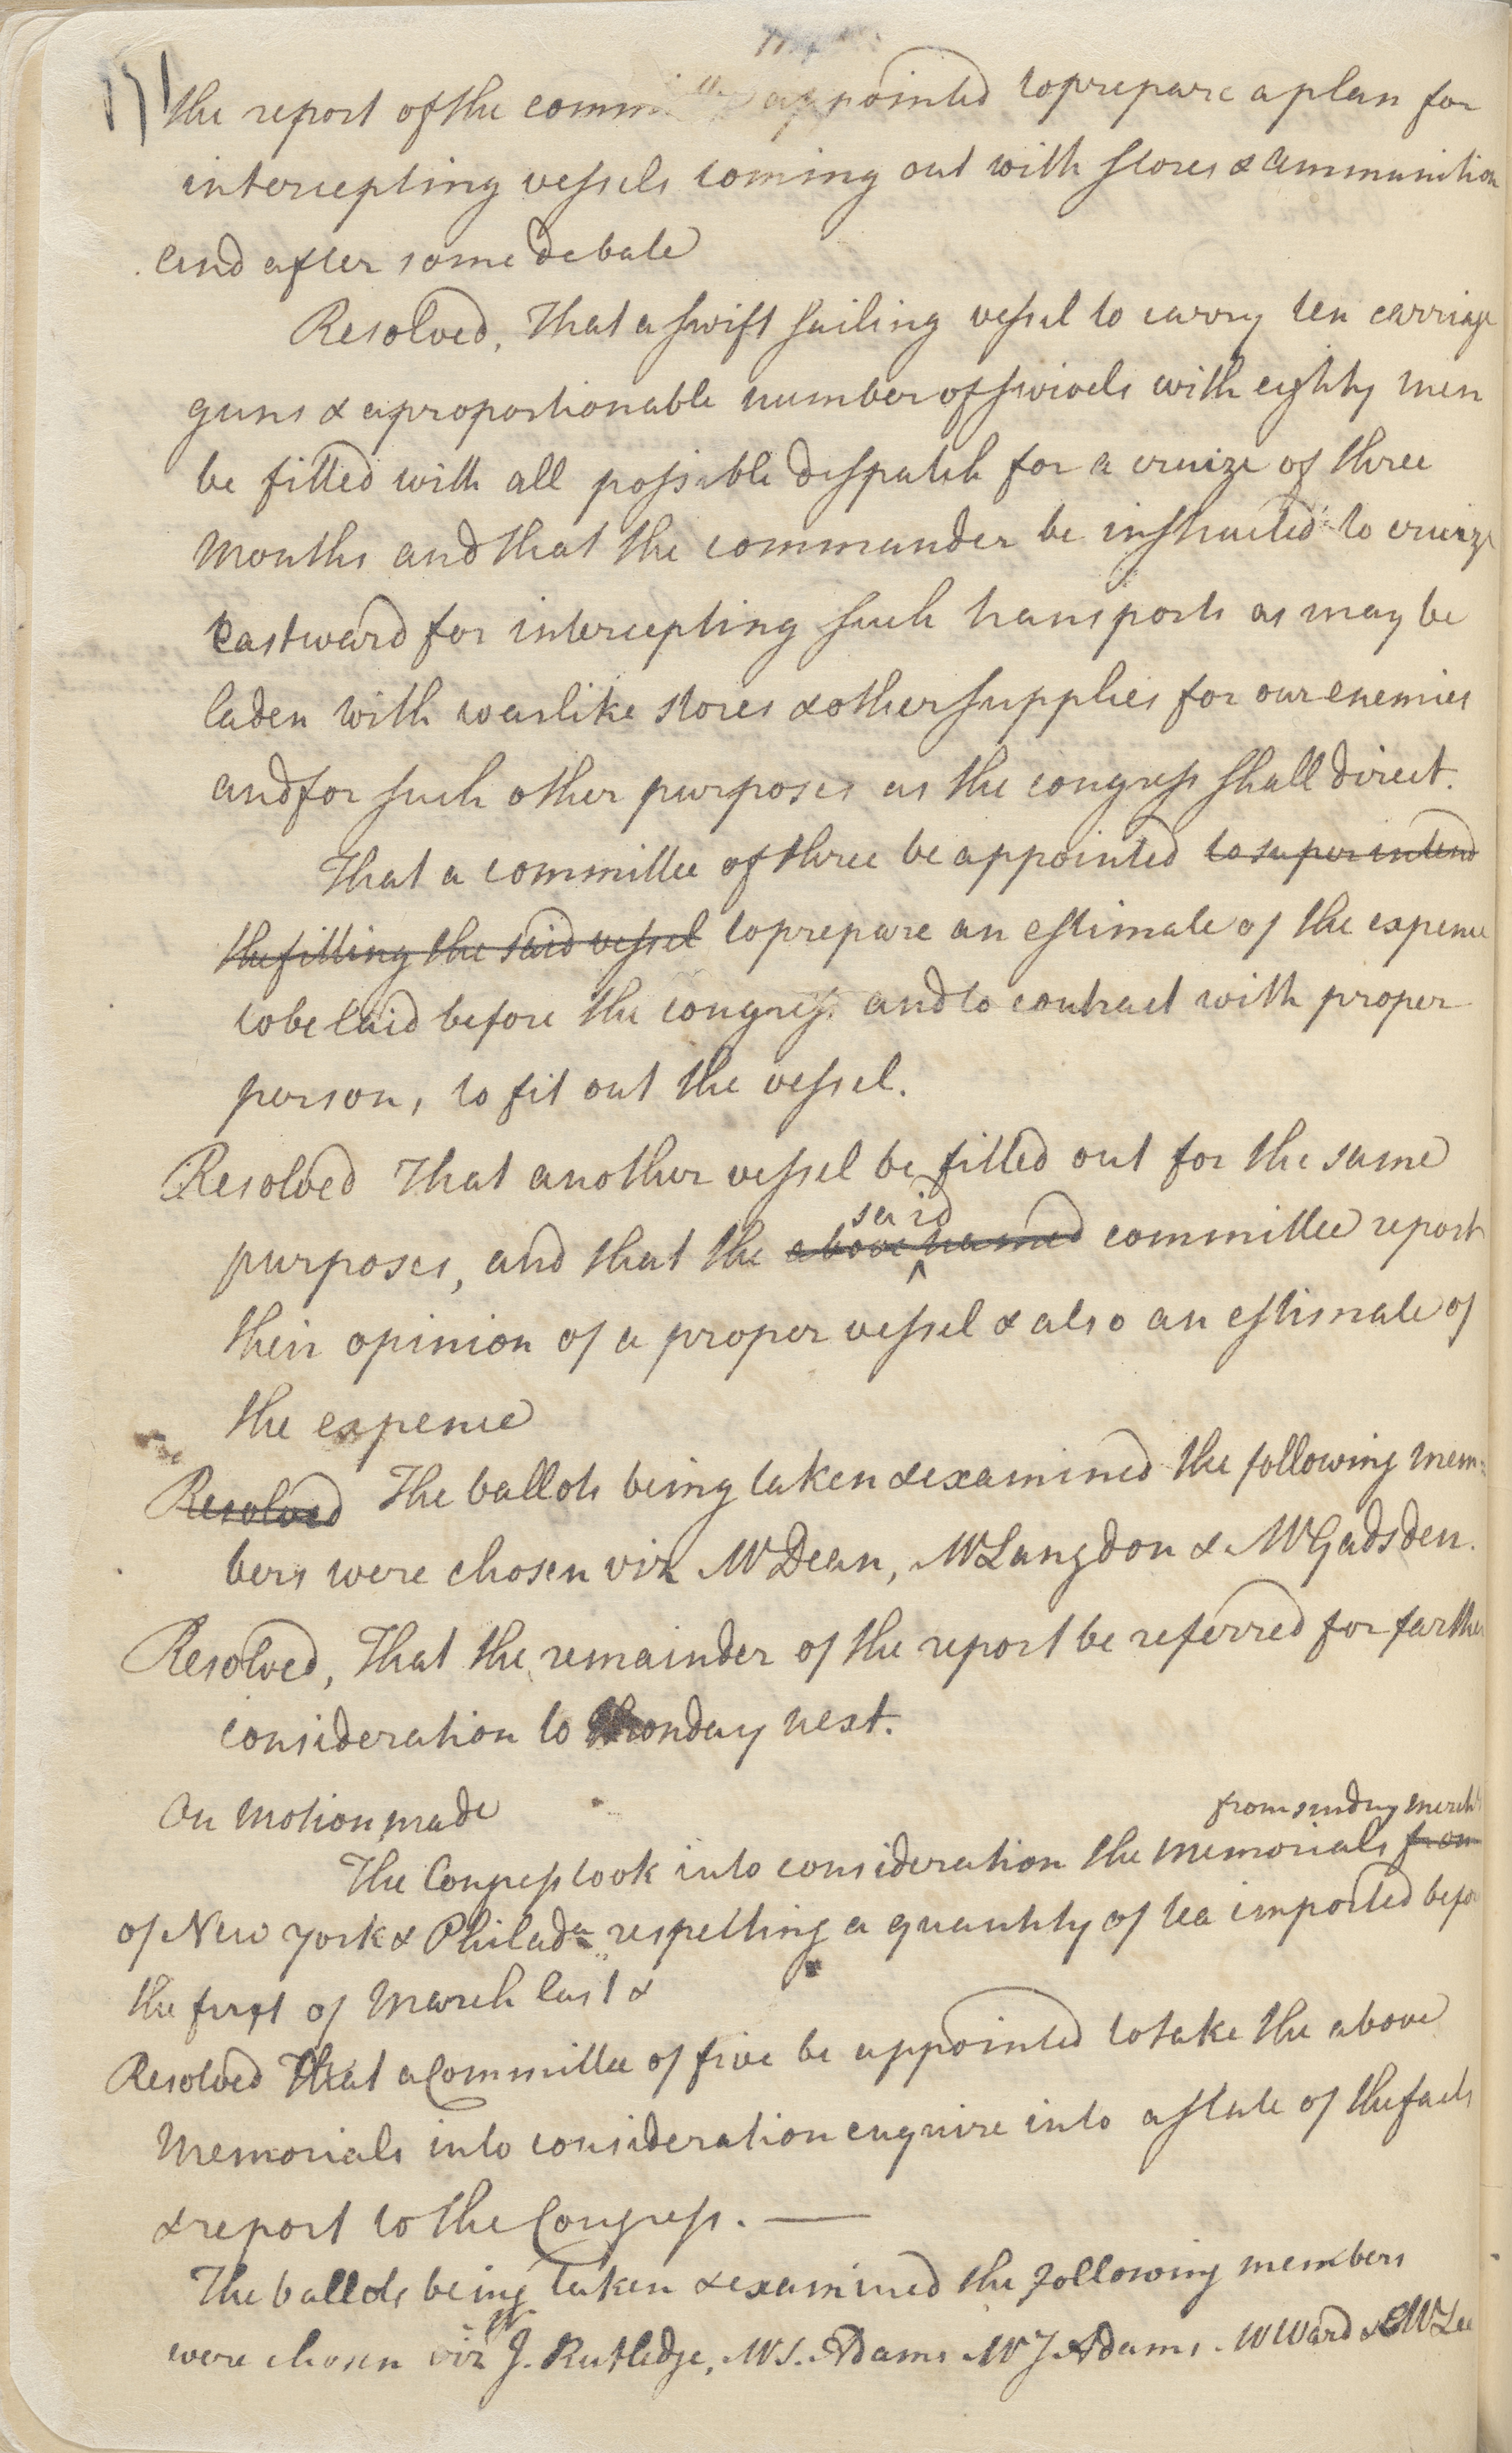 171
the report of the committee appointed to prepare a plan for
intercepting vessels coming out with stores & ammunition
and after some debate
Resolved, That a swift sailing vessel to carry ten carriage
guns & a proportionable number of swivels with eighty men
be fitted with all possible despatch for a cruize of three
months and that the commander be instructed to cruize
eastward for intercepting such transports as may be
laden with warlike stores & other supplies for our enemies
and for such other purposes as the congress shall direct.
That a committee of three be appointed to superintend
the fitting the said vessel to prepare an estimate of the expence
to be laid before the congress and to contract with proper
persons, to fit out the vessel.
Resolved That another vessel be fitted out for the same
said
purposes, and that the above named committee report
their opinion of a proper vessel & also an estimate of
the expence
Resolved The ballots being taken & examined the following mem-
bers were chosen viz Mr Dean, Mr Langdon & Mr Gadsden.
Resolved, That the remainder of the report be referred for farther
consideration to Monday next.
On motion made
from sundry merchts
The Congress took into consideration the memorials from
of New York & Philada respecting a quantity of tea imported before
the first of March last &
Resolved That a Committee of five be appointed to take the above
Memorials into consideration enquire into a state of the facts
& report to the Congress. —
The ballots being taken & examined the following members
were chosen viz Mr J. Rutledge, Mr S. Adams Mr J Adams. Mr Ward & Mr Lee